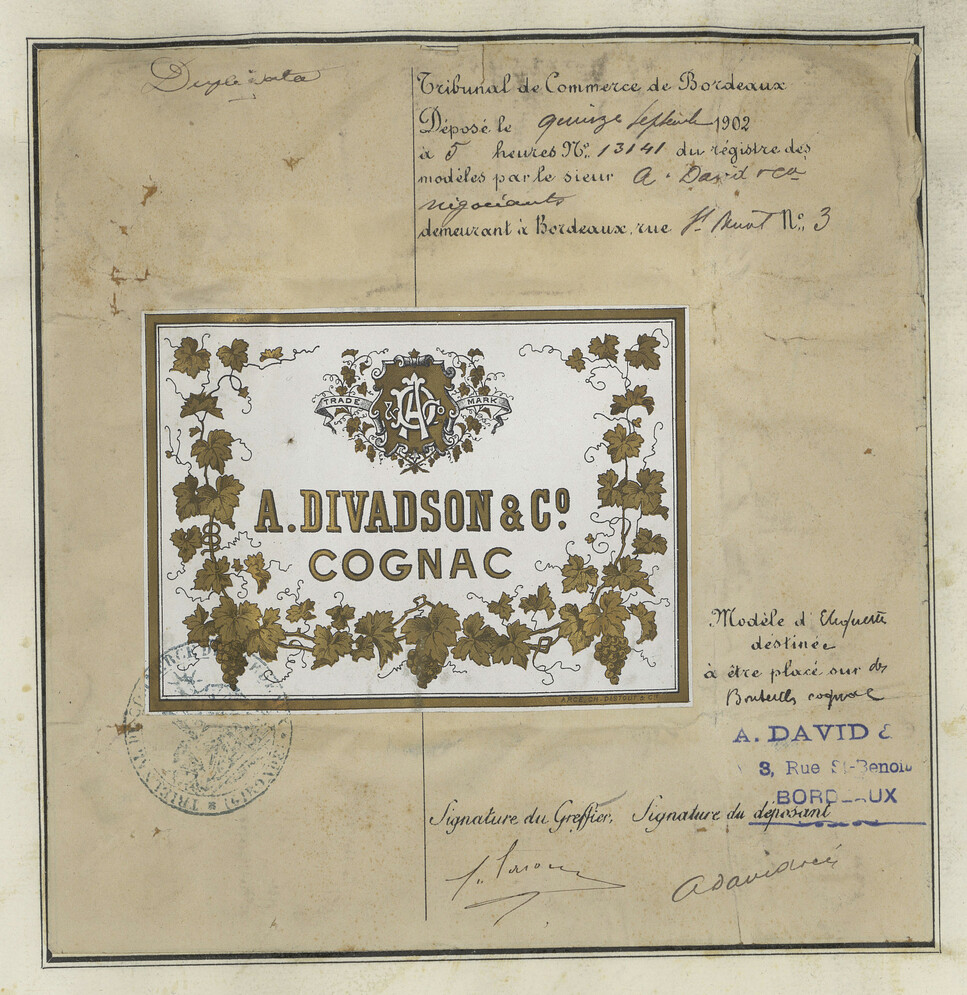 Duplicata
Tribunal de Commerce de Bordeaux
Déposé le quinze septembre 1902
à 5 heures Nº. 13141 du régistre des
modèles par le sieur A. David & Co
négociants
demeurant à Bordeaux, rue St Benoit Nº. 3
TRADE MARK
A. DIVADSON & Cº.
COGNAC
Modèle d'Etiquette
déstinée
à être placé sur des
Bouteilles cognac
A. DAVID &
3, Rue St-Benoit
BORDEAUX
Signature du Greffier, Signature du déposant